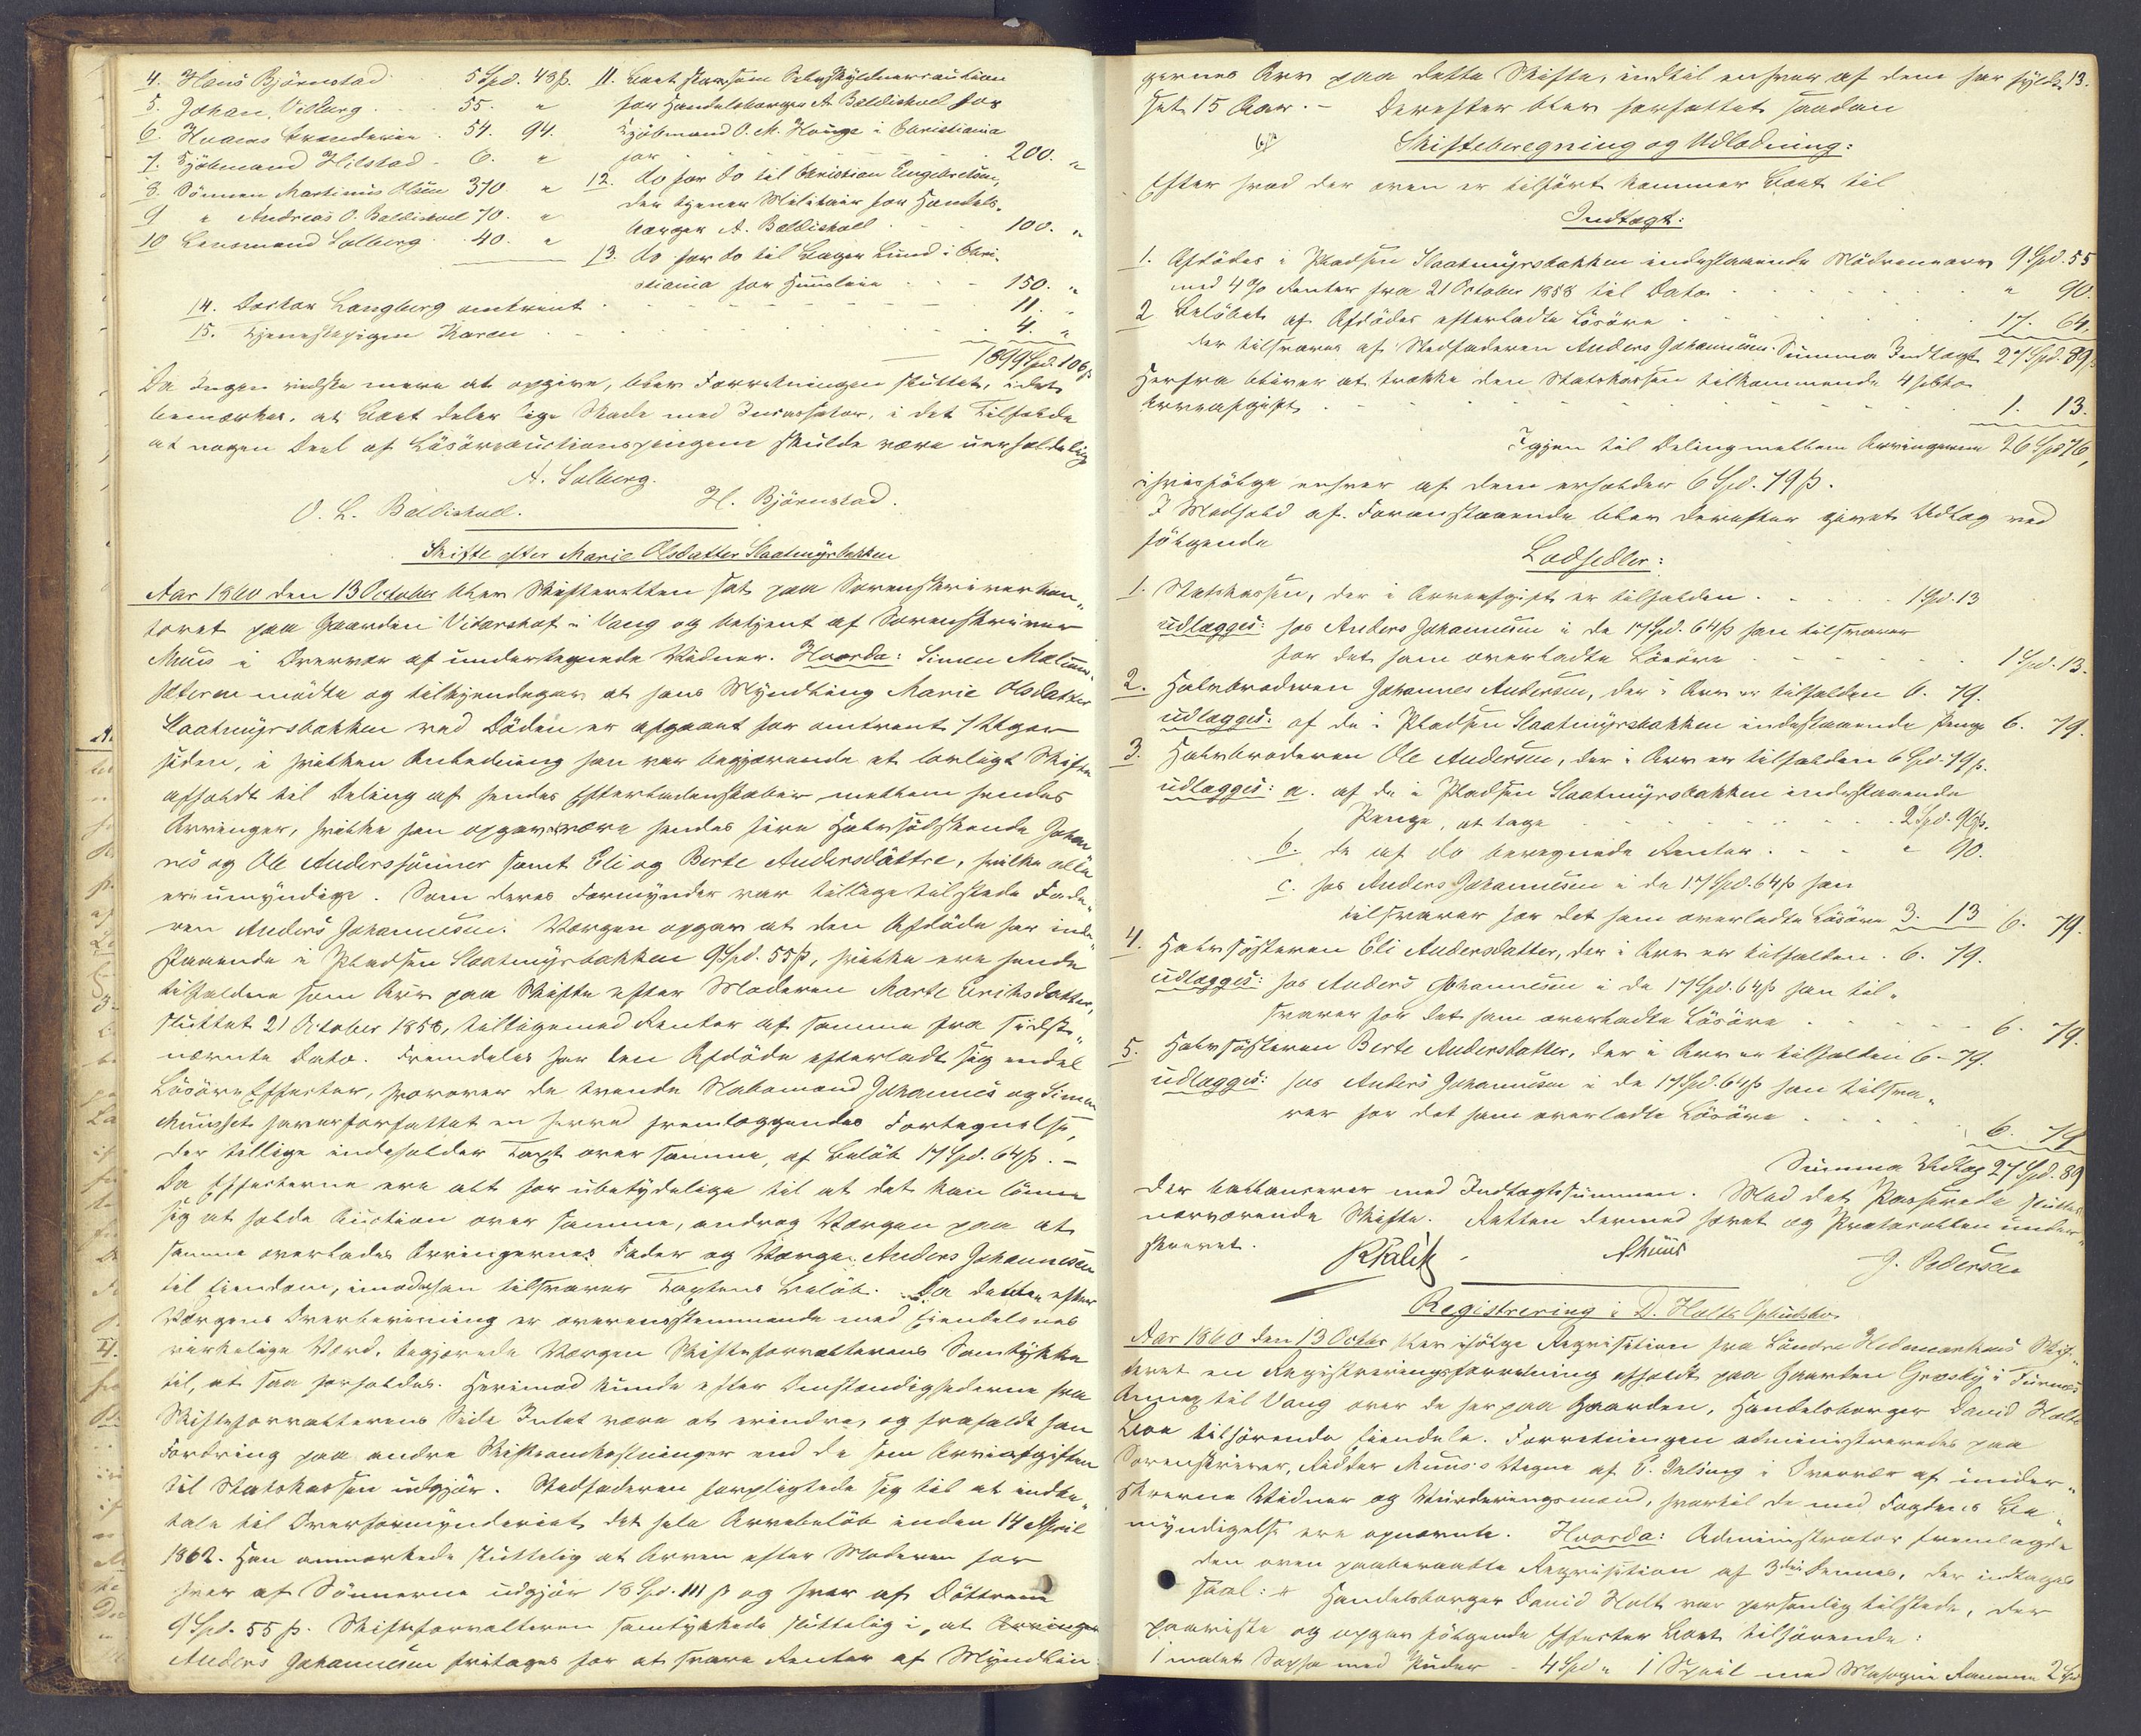 4. Hans Björnstad 5 Spd. 48 ß.
5. Johan Viberg 55. "
6. Husens Creaderier 54. 94.
7. Kjöbmand Hilstad 6. "
8. Sönnen Martinus Olsen 370. "
9 " Andreas O. Baldishoel 70. "
10 Lensmand Solberg 40. "
11. Boet skar som Selvskyldnercaution
for Handelsborger A. Baldishoel for
Kjöbmand O. M. Hauge i Christiania
for 200. "
12. do for do til Christian Engebretsen,
der tjener Militair for Handels-
borger A. Baldishoel 100. "
13. do for do til Bager Lund i Chri-
stiania for Huusleie 150. "
14. Doctor Langberg omtrent 11. "
15. Tjenestepigen Karen 4. "
1899 Spd. 106 ß
Da Ingen vidste mere at opgive, blev Forretningen sluttet, idet
bemærkes, at Boet deler lige Skade med Incassator, i det Tilfælde
at nogen Deel af Lösöreauctionspengene skulde være uerholdelig
A. Solberg.
O. L. Baldishoel. H. Björnstad.
Skifte efter Marie Olsdatter Slaatmyrsbakken
Aar 1860 den 13 October blev Skifteretten sat paa Sorenskriverkon-
toret paa Gaarden Vidarshof i Vang og betjent af Sorenskriver
Muus i Overvær af undertegnede Vidner. Hvorda: Simen Mælum-
sæteren mödte og tilkjendegav at hans Myndling Marie Olsdatter
Slaatmyrsbakken ved Döden er afgaaet for omtrent 7 Uger
siden, i hvilken Anledning han var begjærende et lovligt Skifte
afholdt til Deling af hendes Efterladenskaber mellem hendes
Arvinger, hvilke han opgav være hendes fire Halvsödskende Johan-
nes og Ole Anderssönner samt Eli og Berte Andersdöttre, hvilke alle
ere umyndige. Som deres Formynder var tillige tilstede Fade-
ren Anders Johannesen. Værgen opgav at den Afdöde har inde-
staaende i Pladsen Slaatmyrsbakken 9 Spd. 55 ß, hvilke ere hende
tilfaldne som Arv paa Skifte efter Moderen Marte Eriksdatter,
sluttet 21 October 1858, tilligemed Renter af samme fra sidst-
nævnte Dato. Fremdeles har den Afdöde efterladt sig endel
Lösöre Effecter, hvorover de tvende Naboemænd Johannes og Simen
Muusset have forfattet en herved fremlæggendes Fortegnelse,
der tillige indeholder Taxt over samme, af Belöb 17 Spd. 64 ß. -
Da Effecterne ere alt for ubetydelige til at det kan lönne
sig at holde Auction over samme, androg Værgen paa at
samme overlades Arvingernes Fader og Værge Anders Johannesen
til Eiendom, imod at han tilsvarer Taxtens Beløb. Da dette efter
Værgens Overbeviisning er overensstemmende med Eiendelenes
virkelige Værd, begjærede Værgen Skifteforvalterens Samtykke
til, at saa forholdes. Herimod kunde efter Omstændighederne fra
Skifteforvalterens Side Intet være at erindre, og frafaldt han
Fordring paa andre Skifteomkostninger end de som Arveafgiften
til Statskassen udgjör. Stedfaderen forpligtede sig til at indbe-
tale til Overformynderiet det hele Arvebelöb inden 14 April
1862. Han anmærkede sluttelig at Arven efter Moderen for
hver af Sönnerne udgjör 18 Spd. 111 ß og hver af Döttrene
9 Spd. 55 ß. Skifteforvalteren samtykkede sluttelig i, at
Anders Johannesen fritages for at svare Renter af Myndlin-
13.
gernes Arv paa dette Skifte, indtil enhver af dem har fyldt
sit 15 Aar. - Derefter blev forfattet saadan
Skifteberegning og Udlodning:
Efter hvad der oven er tilfört kommer Boet til
Indtægt:
1. Afdödes i Pladsen Slaatmyrsbakken indestaaende Mödrenearv 9 Spd. 55
med 4 % Renter fra 21 October 1858 til Dato " 90.
2 Belöbet af Afdödes efterladte Lösöre 17. 64,
der tilsvares af Stedfaderen Anders Johannesen. Summa Indtægt 27 Spd. 89 ß
Herfra bliver at trække den Statskassen tilkommende 4 pCto
Arveafgift 1. 13.
Igjen til Deling mellem Arvingerne 26 Spd 76,
ifölge hvilket enhver af dem erholder 6 Spd. 79 ß.
I Medhold af Foranstaaende blev derefter gjort Udlæg ved
fölgende
Lodsedler:
1. Statskassen, der i Arveafgift er tilfalden 1 Spd. 13
udlægges: hos Anders Johannesen i de 17 Spd. 64 ß han tilsvarer
for det ham overladte Lösöre 1 Spd. 13.
2. Halvbroderen Johannes Andersen, der i Arv er tilfalden 6. 79.
udlægges: af de i Pladsen Slaatmyrsbakken indestaaende Penge 6. 79.
3. Halvbroderen Ole Andersen, der i Arv er tilfalden 6 Spd. 79 ß.
udlægges: a. af de i Pladsen Slaatmyrsbakken indestaaende
Penge, at tage 2 Spd. 96 ß.
b. de af do beregnede Renter " 90.
c. hos Anders Johannesen i de 17 Spd. 64 ß han
tilsvarer for det ham overladte Lösöre 3. 13 6. 79.
4. Halvsösteren Eli Andersdatter, der i Arv er tilfalden 6. 79.
udlægges: hos Anders Johannesen i de 17 Spd. 64 ß han til-
svarer for det ham overladte Lösöre 6. 79.
5. Halvsösteren Berte Andersdatter, der i Arv er tilfalden 6 - 79.
udlægges: hos Anders Johannesen i de 17 Spd. 64 ß han tilsva-
rer for det ham overladte Lösöre 6. 79
Summa Udlæg 27 Spd. 89
der ballancerer med Indtægtssummen. Med det Passerede sluttes
nærværende Skifte. Retten dermed hævet og Protocollen under-
skrevet.
Muus J. Pedersen
Registrering i D. Holts Opbudsbo
Aar 1860 den 13 Octbr blev ifölge Requisition fra Söndre Hedemarkens Skif-
teret en Registreringsforretning afholdt paa Gaarden Grosby i Furnæs
Annex til Vang over de her paa Gaarden, Handelsborger David Holts
Boe tilhörende Eiendele. Forretningen administreredes paa
Sorenskriver, Ridder Muus's Vegne af E. Dulsing i Overvær af under-
skrevne Vidner og Vurderingsmænd, hvortil de med Fogdens Be-
myndigelse ere opnævnte. Hvorda: Administrator fremlagde
den oven paaberaabte Requisition af 3die dennes, der indtages
saal: + Handelsborger David Holt var personlig tilstede, der
paaviste og opgav fölgende Effecter Boet tilhörende:
1 malet Sopha med Puder - 4 Spd " 1 Speil med Mahogni Ramme 2 Spd